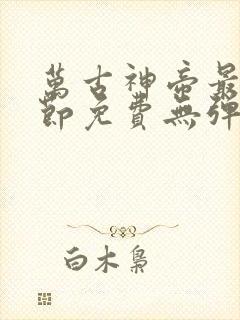 萬古神帝最
節免費無彈
白木梟